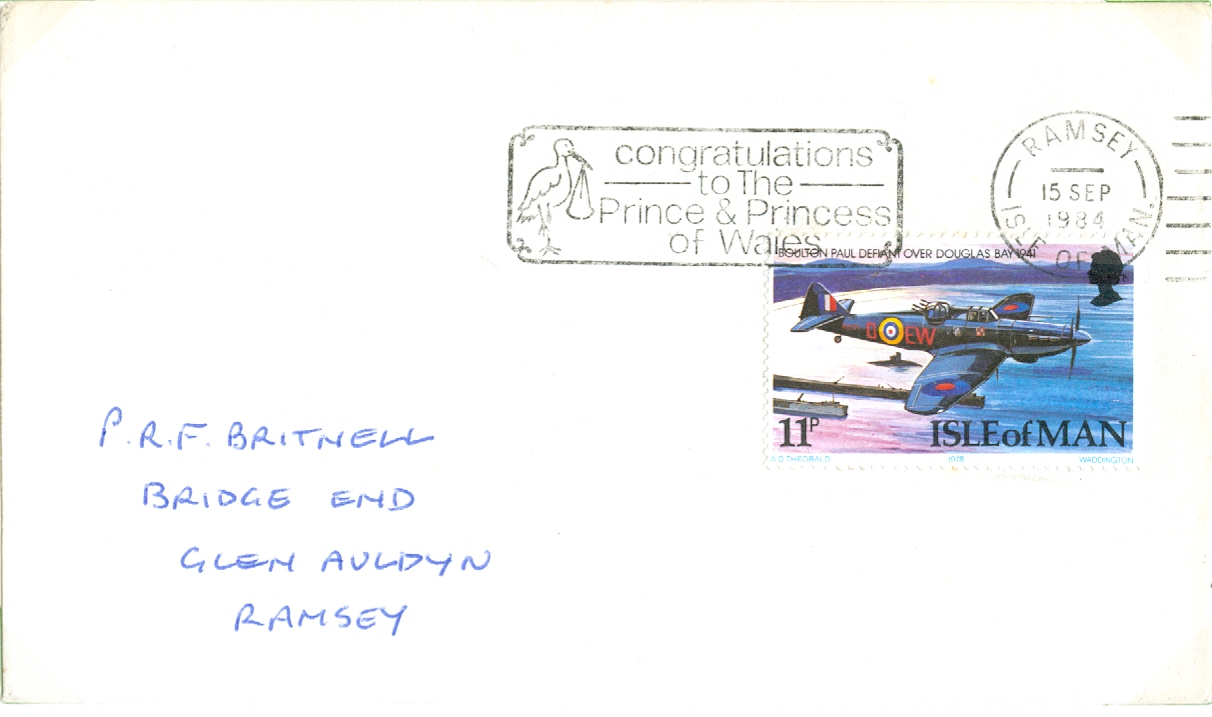 congratulations
to The
Prince & Princess
of Wales
RAMSEY
15 SEP
1984
ISLE OF MAN.
BOULTON PAUL DEFIANT OVER DOUGLAS BAY 1941
EW
11P
ISLE of MAN
A.D. THEOBALD 1978 WADDINGTON
P.R.F. BRITNELL
BRIDGE END
GLEN AULDYN
RAMSEY